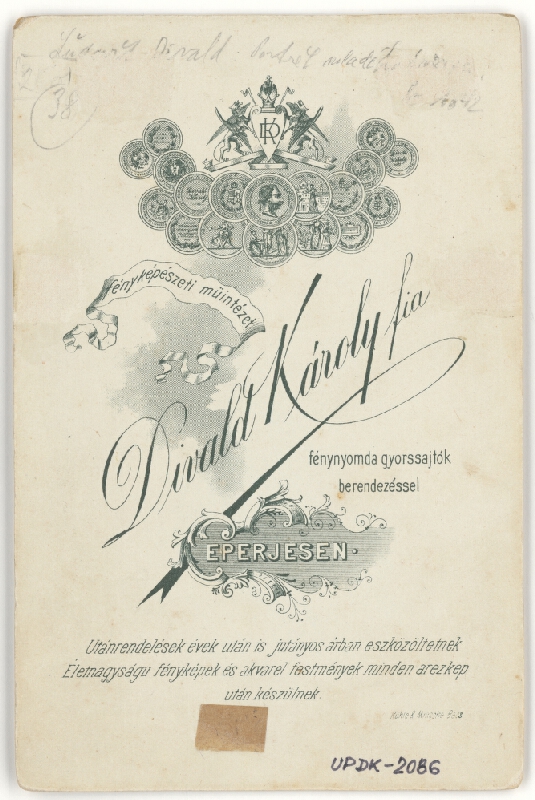 Divald
38
KD
Fényképészeti műintézet
Divald Károly fia
fénynyomda gyorssajtók
berendezéssel
EPERJESEN.
Utánrendelések évek után is jutányos árban eszközöltetnek
Életnagyságú fényképek és akvarel festmények minden arezkép
után készülnek.
UPDK-2086